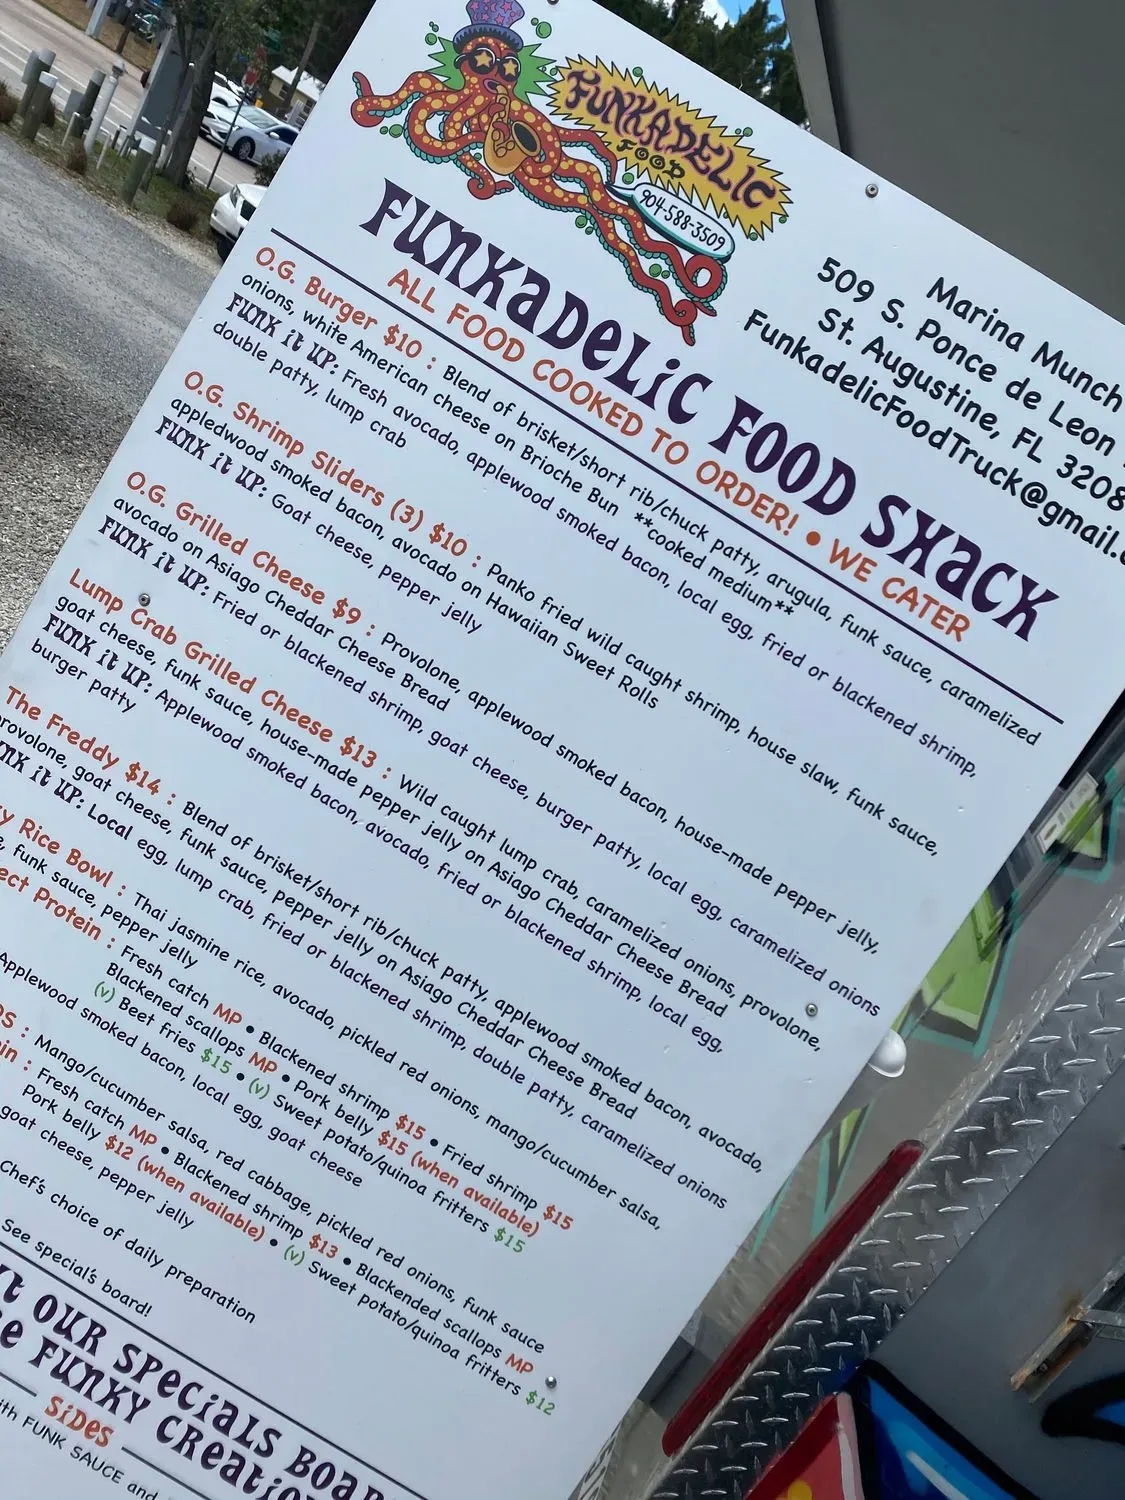 FUNKADELIC
FOOD
904-588-3509
Marina Munch
509 S. Ponce de Leon
St. Augustine, FL 3208
FunkadelicFoodTruck@gmail.c
FUNKADELIC FOOD SHACK
ALL FOOD COOKED TO ORDER! • WE CATER
O.G. Burger $10 : Blend of brisket/short rib/chuck patty, arugula, funk sauce, caramelized
onions, white American cheese on Brioche Bun **cooked medium**
FUNK it UP: Fresh avocado, applewood smoked bacon, local egg, fried or blackened shrimp,
double patty, lump crab
O.G. Shrimp Sliders (3) $10 : Panko fried wild caught shrimp, house slaw, funk sauce,
appledwood smoked bacon, avocado on Hawaiian Sweet Rolls
FUNK it UP: Goat cheese, pepper jelly
O.G. Grilled Cheese $9 : Provolone, applewood smoked bacon, house-made pepper jelly,
avocado on Asiago Cheddar Cheese Bread
FUNK it UP: Fried or blackened shrimp, goat cheese, burger patty, local egg, caramelized onions
Lump Crab Grilled Cheese $13 : Wild caught lump crab, caramelized onions, provolone,
goat cheese, funk sauce, house-made pepper jelly on Asiago Cheddar Cheese Bread
FUNK it UP: Applewood smoked bacon, avocado, fried or blackened shrimp, local egg,
burger patty
The Freddy $14 : Blend of brisket/short rib/chuck patty, applewood smoked bacon, avocado,
provolone, goat cheese, funk sauce, pepper jelly on Asiago Cheddar Cheese Bread
UNK it UP: Local egg, lump crab, fried or blackened shrimp, double patty, caramelized onions
y Rice Bowl : Thai jasmine rice, avocado, pickled red onions, mango/cucumber salsa,
e, funk sauce, pepper jelly
ect Protein : Fresh catch MP • Blackened shrimp $15 • Fried shrimp $15
Blackened scallops MP • Pork belly $15 (when available)
(v) Beet fries $15 • (v) Sweet potato/quinoa fritters $15
Applewood smoked bacon, local egg, goat cheese
OS : Mango/cucumber salsa, red cabbage, pickled red onions, funk sauce
ein : Fresh catch MP • Blackened shrimp $13 • Blackended scallops MP
Pork belly $12 (when available) • (v) Sweet potato/quinoa fritters $12
goat cheese, pepper jelly
Chef's choice of daily preparation
See special's board!
t OUR SPECIALS BOAR
e FUNKY CREATIO
SIDES
ith FUNK SAUCE and